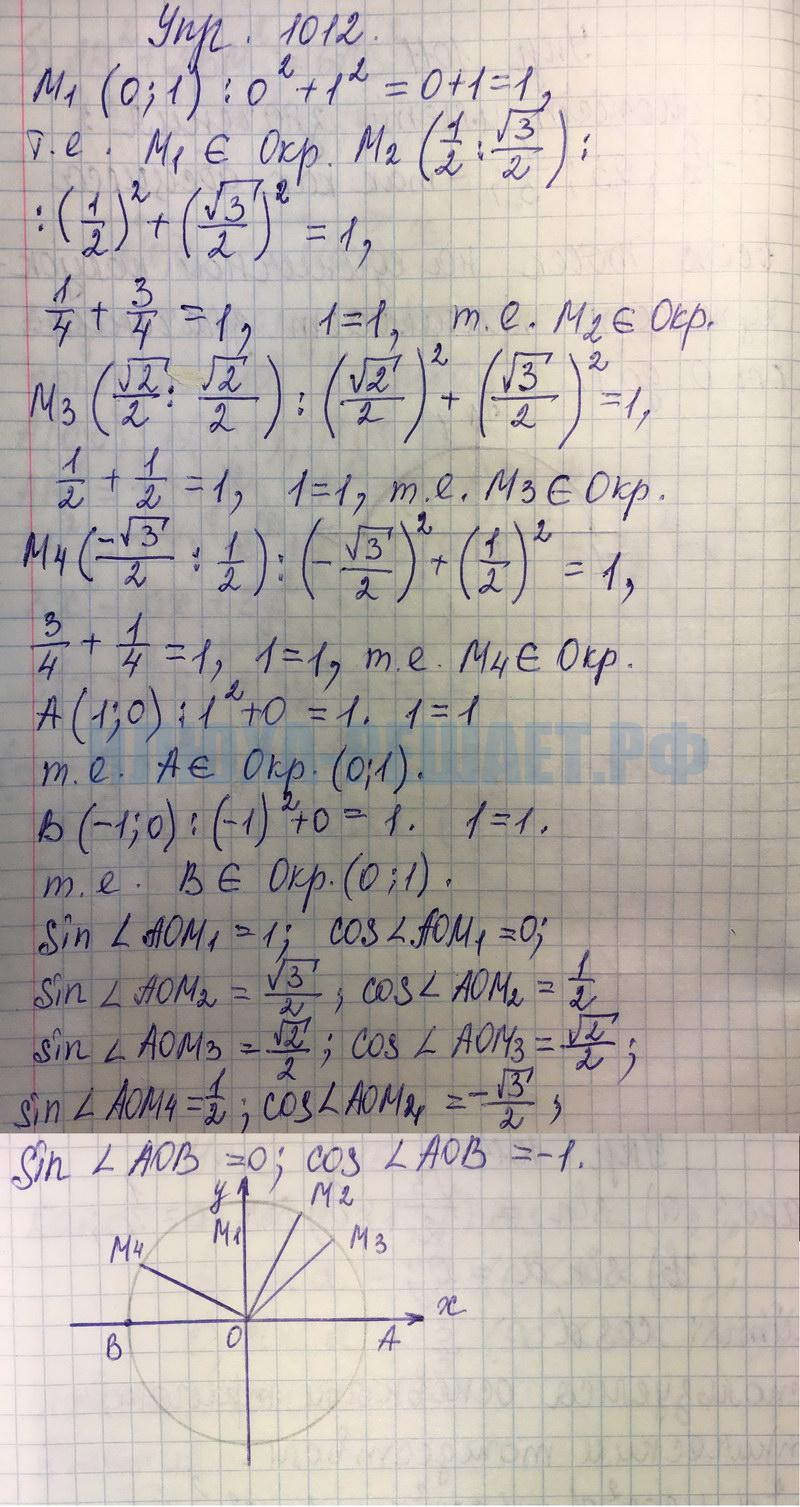 Упр. 1012.
M1 (0;1) : 0² + 1² = 0+1=1,
т.е. M1 ∈ Окр. M2 (1/2 : √3/2) :
: (1/2)² + (√3/2)² = 1,
1/4 + 3/4 = 1, 1=1, т.е. M2 ∈ Окр.
M3 (√2/2 : √2/2) : (√2/2)² + (√3/2)² = 1,
1/2 + 1/2 = 1, 1=1, т.е. M3 ∈ Окр.
M4 (-√3/2 : 1/2) : (-√3/2)² + (1/2)² = 1,
3/4 + 1/4 = 1, 1=1, т.е. M4 ∈ Окр.
A (1;0) : 1² + 0 = 1. 1=1
т.е. A ∈ Окр. (0;1).
B (-1;0) : (-1)² + 0 = 1. 1=1.
т.е. B ∈ Окр. (0;1).
Sin ∠ AOM1 = 1; cos ∠ AOM1 = 0;
Sin ∠ AOM2 = √3/2; cos ∠ AOM2 = 1/2
sin ∠ AOM3 = √2/2; cos ∠ AOM3 = √2/2;
sin ∠ AOM4 = 1/2; cos ∠ AOM4 = -√3/2,
Sin ∠ AOB = 0; cos ∠ AOB = -1.
y M2
M1 M3
M4
x
B O A